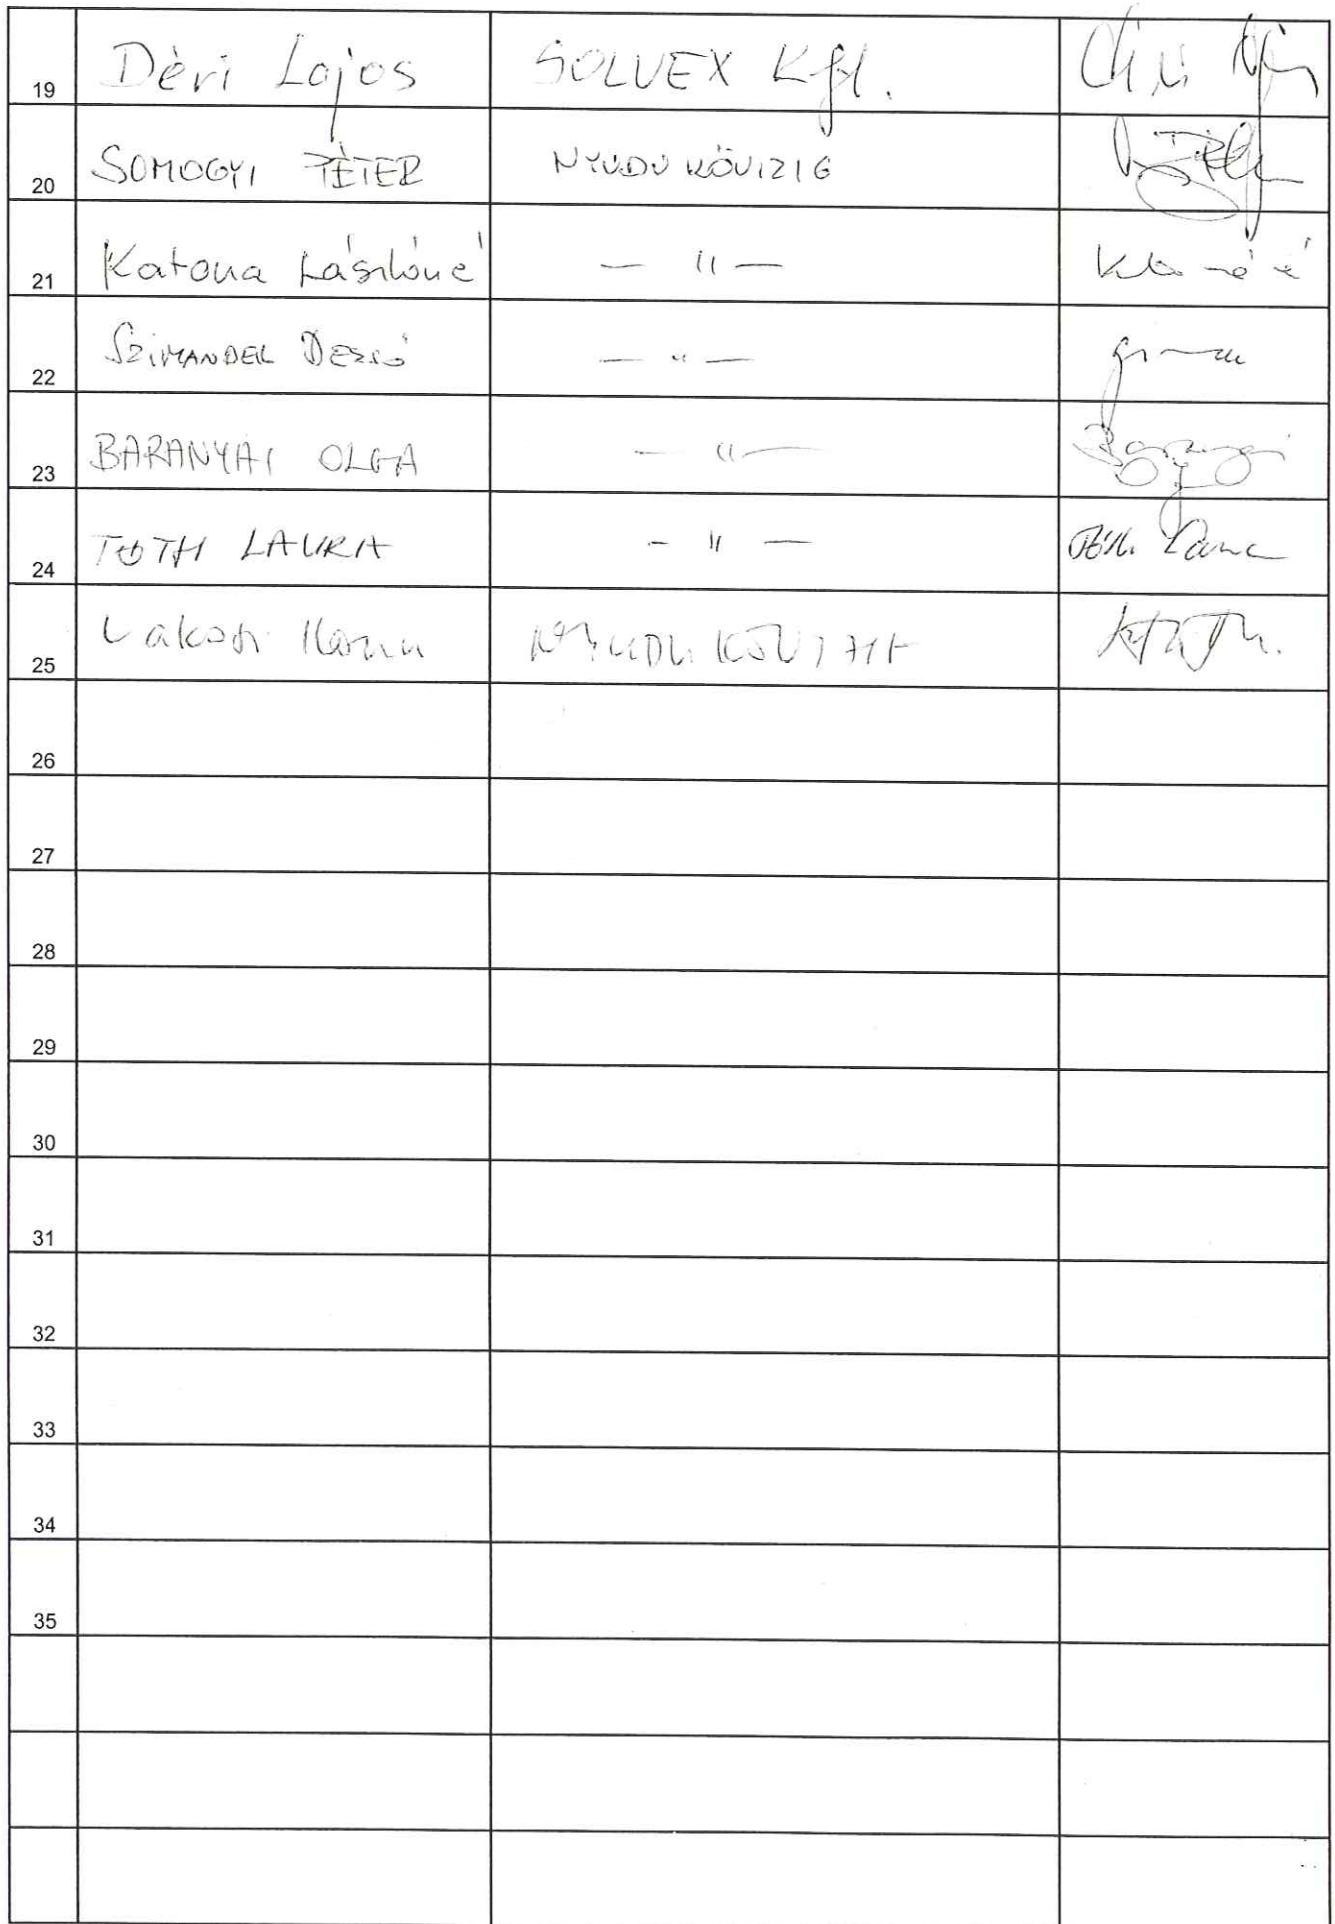 19 Déri Lajos SOLVEX Kft.
20 SOMOGYI PÉTER NYUDU KÖVIZIG
21 Katona Lászlóné — " —
22 SZIMANDEL DEZSŐ — " —
23 BARANYAI OLGA — " —
24 TÓTH LAURA — " — Tóth Laura
25
26
27
28
29
30
31
32
33
34
35